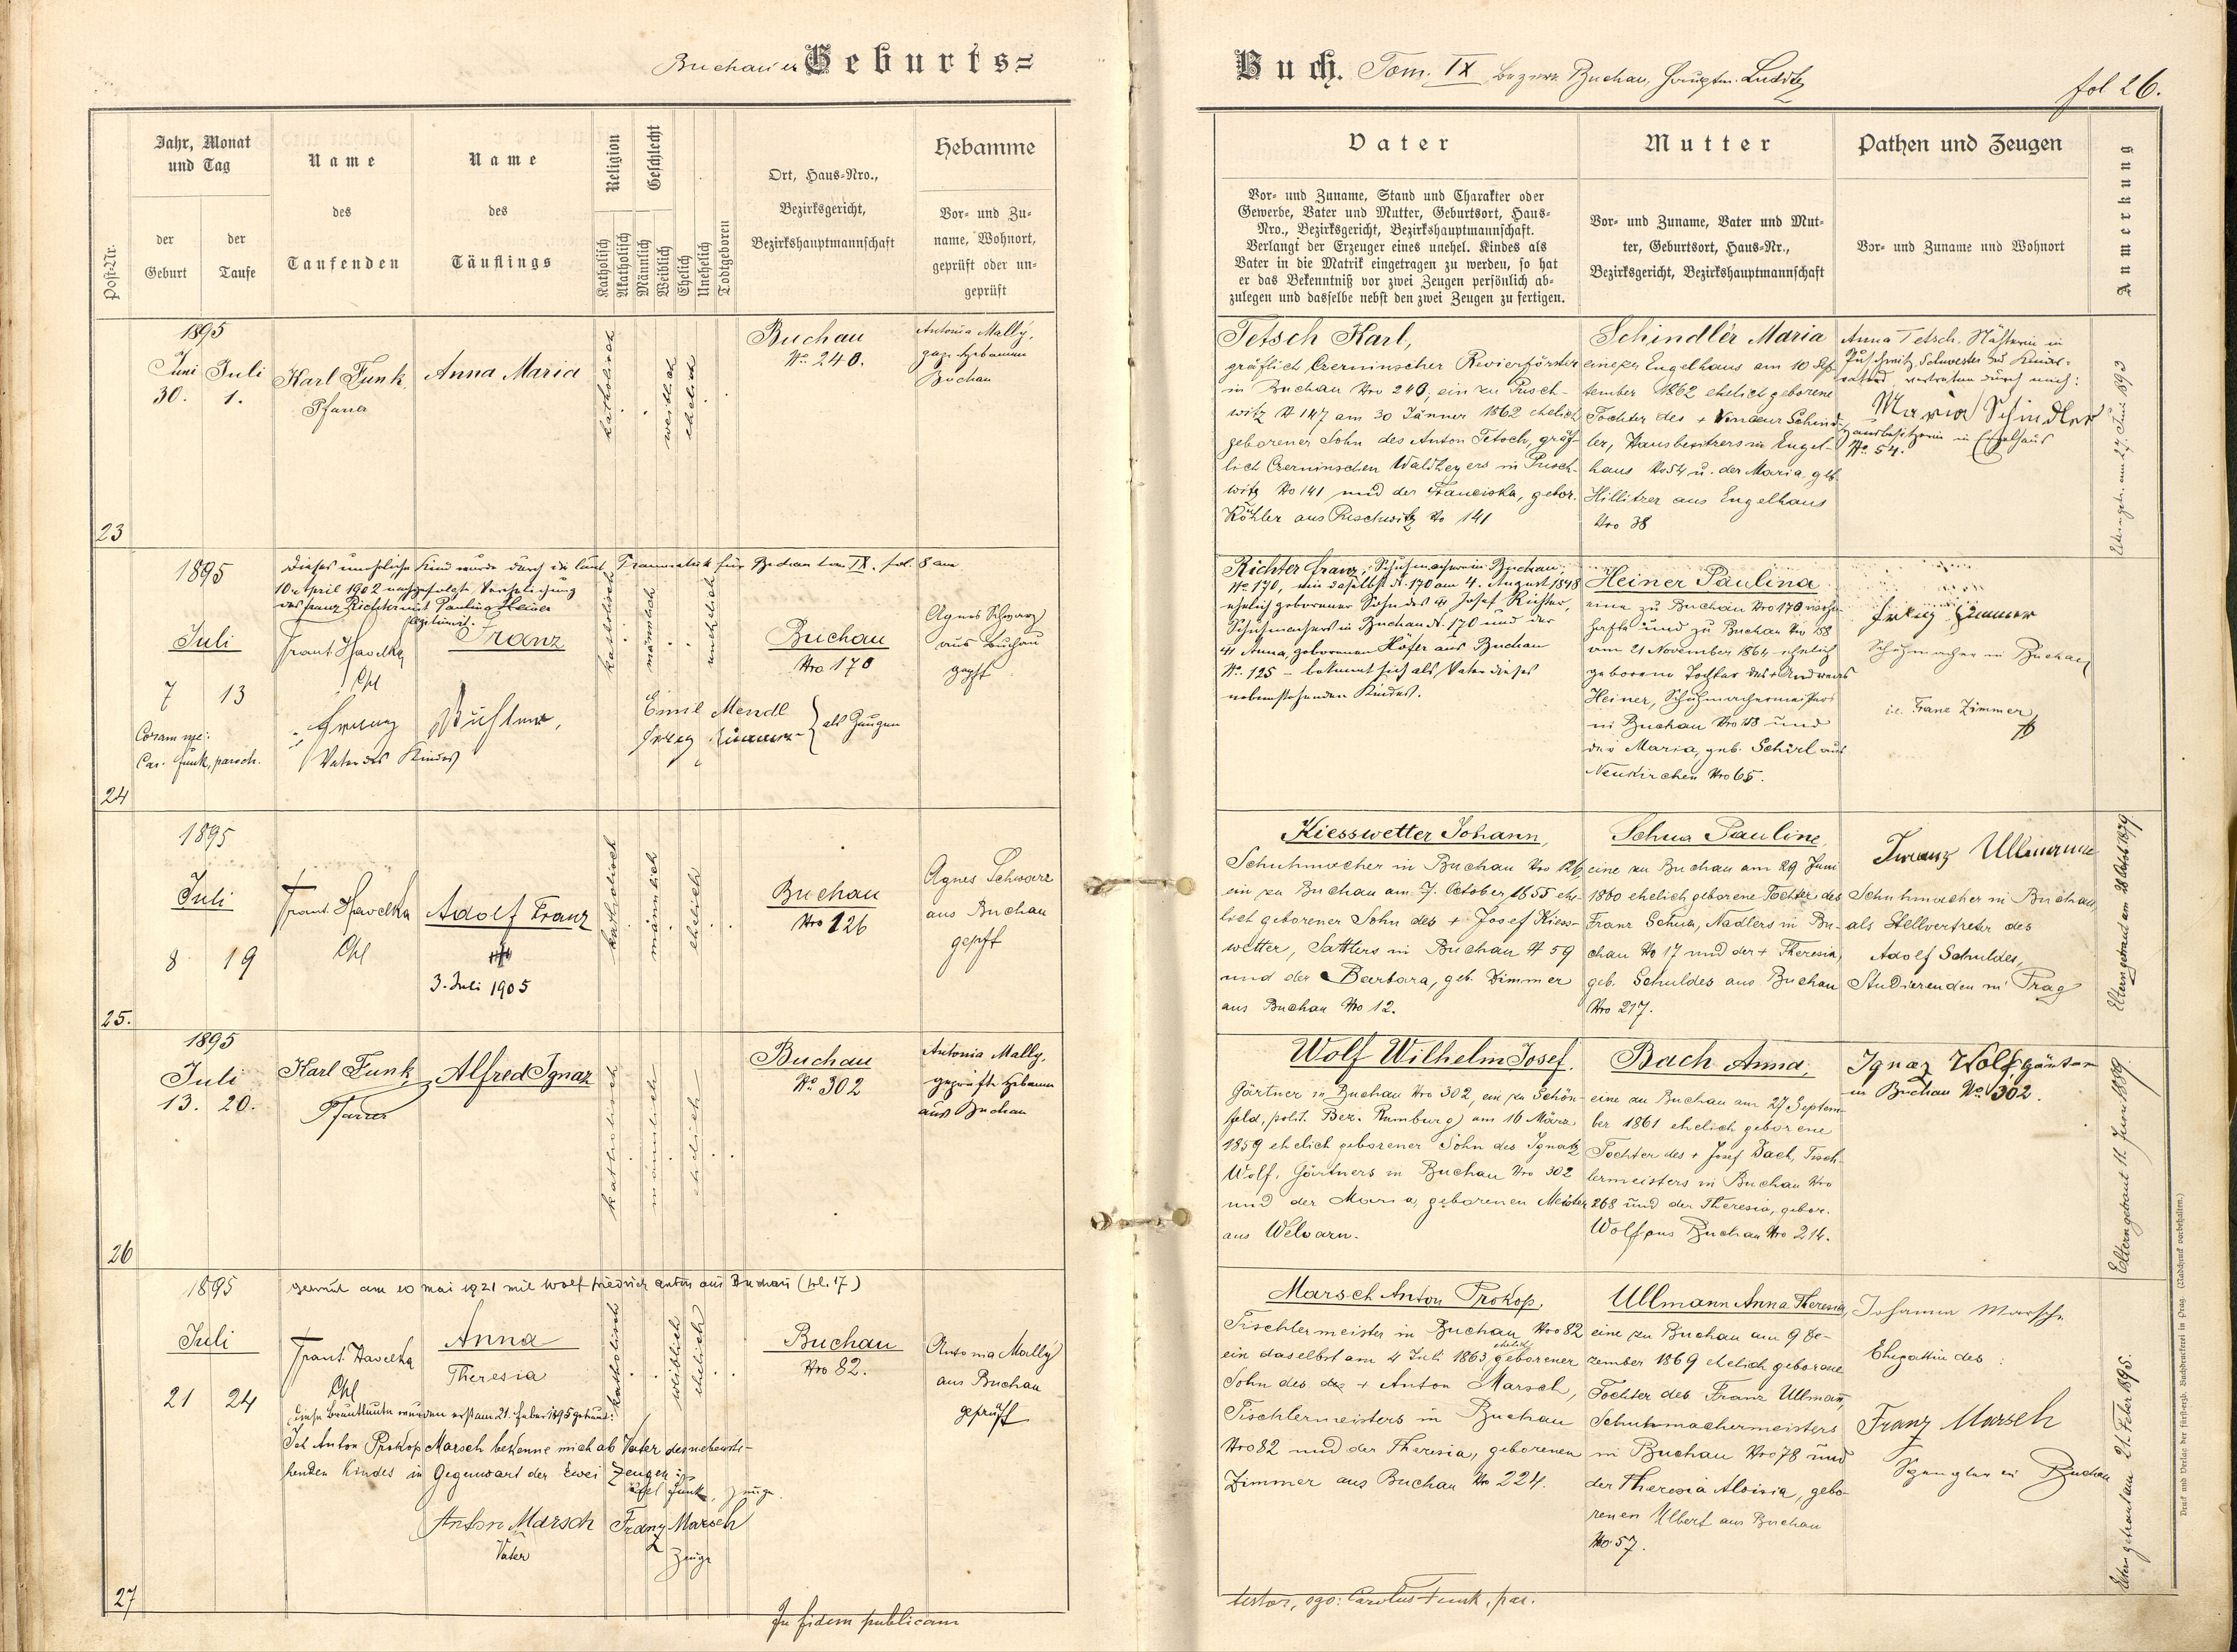 Buchauer Geburts=
Jahr, Monat
und Tag
Name
Name
Religion
Geschlecht
Hebamme
Ort, Haus-Nro.,
Bezirksgericht,
Bezirkshauptmannschaft
des
des
Vor- und Zu-
name, Wohnort,
geprüft oder un-
geprüft
der
der
Post-Nr.
Geburt
Taufe
Taufenden
Täuflings
Katholisch
Akatholisch
Männlich
Weiblich
Ehelich
Unehelich
Todtgeboren
1895
Juni Juli
30. 1.
Karl Funk
Pfarrer
Anna Maria
katholisch
weiblich
ehelich
Buchau
No. 240.
Antonia Mally,
gepr. Hebamme
Buchau
23
1895
Dieses uneheliche Kind wurde durch die laut Traumatrik für Buchau tom IX. fol. 8 am
10. April 1902 nachgefolgte Verehelichung
des Franz Richter mit Paulina Heiner
legitimirt.
Juli
7 13
Frant. Havelka
Cpl
Franz
katholisch
männlich
unehelich
Buchau
Nro 170
Agnes Schwarz
aus Buchau
gepft
Coram me:
Car. Funk, paroch.
Franz Richter,
Vater des Kindes
Emil Mendl
Franz Zimmer
als Zeugen
24
1895
Juli
8 19
Frant. Havelka
Cpl
Adolf Franz
3. Juli 1905
katholisch
männlich
ehelich
Buchau
Nro 126
Agnes Schwarz
aus Buchau
gepft
25.
1895
Juli
13. 20.
Karl Funk,
Pfarrer
Alfred Ignaz
katholisch
männlich
ehelich
Buchau
No. 302
Antonia Mally,
geprüfte Hebamme
aus Buchau
26
1895
getraut am 10 Mai 1921 mit Wolf Friedrich Anton aus Buchau (fol. 17)
Juli
21 24
Frant. Havelka
Cpl
Anna
Theresia
katholisch
weiblich
ehelich
Buchau
Nro 82.
Antonia Mally
aus Buchau
geprüft
Diese Brautleute wurden erst am 21. Feber 1895 getraut:
Ich Anton Prokop Marsch bekenne mich als Vater des nebenste-
henden Kindes in Gegenwart der zwei Zeugen:
Funk, Zeuge
Anton Marsch
Vater
Franz Marsch
Zeuge
27
In fidem publicam
Buch. Tom. IX Bezirk Buchau, Hauptm. Luditz
fol 26.
Vater
Mutter
Pathen und Zeugen
Anmerkung
Vor- und Zuname, Stand und Charakter oder
Gewerbe, Vater und Mutter, Geburtsort, Haus-
Nro., Bezirksgericht, Bezirkshauptmannschaft.
Verlangt der Erzeuger eines unehel. Kindes als
Vater in die Matrik eingetragen zu werden, so hat
er das Bekenntniß vor zwei Zeugen persönlich ab-
zulegen und dasselbe nebst den zwei Zeugen zu fertigen.
Vor- und Zuname, Vater und Mut-
ter, Geburtsort, Haus-Nr.,
Bezirksgericht, Bezirkshauptmannschaft
Vor- und Zuname und Wohnort
Tetsch Karl,
gräflich Czerninscher Revierförster
in Buchau Nro 240, ein zu Pusch-
witz # 147 am 30 Jänner 1862 ehelich
geborener Sohn des Anton Tetsch, gräf-
lich Czerninschen Waldhegers in Pusch-
witz No 141 und der Franciska, gebor.
Köhler aus Puschwitz No 141
Schindler Maria
eine zu Engelhaus am 10 Sep-
tember 1862 ehelich geborene
Tochter des + Vinzenz Schind-
ler, Hausbesitzers in Engel-
haus No 54 u. der Maria geb.
Hillitzer aus Engelhaus
Nro 38
Anna Tetsch, Nähterin in
Puschwitz, Schwester des Kindes-
vaters, vertreten durch mich:
Maria Schindler
Hausbesitzerin in Engelhaus
No. 54.
Eltern getr. am 27. Juni 1893
Richter Franz, Schuhmacher in Buchau
No. 170, ein daselbst N. 170 am 4. August 1848
ehelich geborener Sohn des Josef Richter,
Schuhmachers in Buchau N. 170 und der
Anna, geborenen Höfer aus Buchau
No. 125 – bekennt sich als Vater dieses
nebenstehenden Kindes.
Heiner Paulina
eine zu Buchau Nro 170 wohn-
hafte und zu Buchau Nro 158
am 21 November 1864 ehelich
geborene Tochter des + Andreas
Heiner, Schuhmachermeisters
in Buchau Nro 158 und
der Maria, geb. Schürl aus
Neukirchen Nro 65.
Franz Zimmer
Schuhmacher in Buchau
i.e. Franz Zimmer
Kiesswetter Johann,
Schuhmacher in Buchau Nro 126,
ein zu Buchau am 7. October 1855 ehe-
lich geborener Sohn des + Josef Kiess-
wetter, Sattlers in Buchau # 59
und der Barbara, geb. Zimmer
aus Buchau Nro 12.
Schua Pauline,
eine zu Buchau am 29 Juni
1860 ehelich geborene Tochter des
Franz Schua, Nadlers in Bu-
chau No 17 und der + Theresia,
geb. Schuldes aus Buchau
Nro 217.
Franz Ullmann
Schuhmacher in Buchau,
als Stellvertreter des
Adolf Schuldes,
Studierenden in Prag
Eltern getraut am 28 Octob 1879.
Wolf Wilhelm Josef.
Gärtner in Buchau Nro 302, ein zu Schön-
feld, polit. Bez. Rumburg, am 16 März
1859 ehelich geborener Sohn des Ignatz
Wolf, Gärtners in Buchau Nro 302
und der Maria, geborenen Meister
aus Welwarn.
Bach Anna,
eine zu Buchau am 27 Septem-
ber 1861 ehelich geborene
Tochter des + Josef Bach, Tisch-
lermeisters in Buchau Nro
268 und der Theresia, gebor.
Wolf aus Buchau Nro 214.
Ignaz Wolf, Gärtner
in Buchau No. 302.
Eltern getraut 11. Juni 1889
Marsch Anton Prokop,
Tischlermeister in Buchau Nro 82
ein daselbst am 4 Juli 1863 ehelich geborener
Sohn des + Anton Marsch,
Tischlermeisters in Buchau
Nro 82 und der Theresia, geborenen
Zimmer aus Buchau No 224.
Ullmann Anna Theresia,
eine zu Buchau am 9 De-
zember 1869 ehelich geborene
Tochter des Franz Ullmann,
Schuhmachermeisters
in Buchau Nro 78 und
der Theresia Aloisia, gebo-
renen Ulbert aus Buchau
No 57.
Johanna Marsch
Ehegattin des:
Franz Marsch
Spengler in Buchau
Eltern getraut am 21. Feber 1895.
testor, ego: Carolus Funk, par.
Druck und Verlag der fürsterzb. Buchdruckerei in Prag. (Nachdruck vorbehalten.)